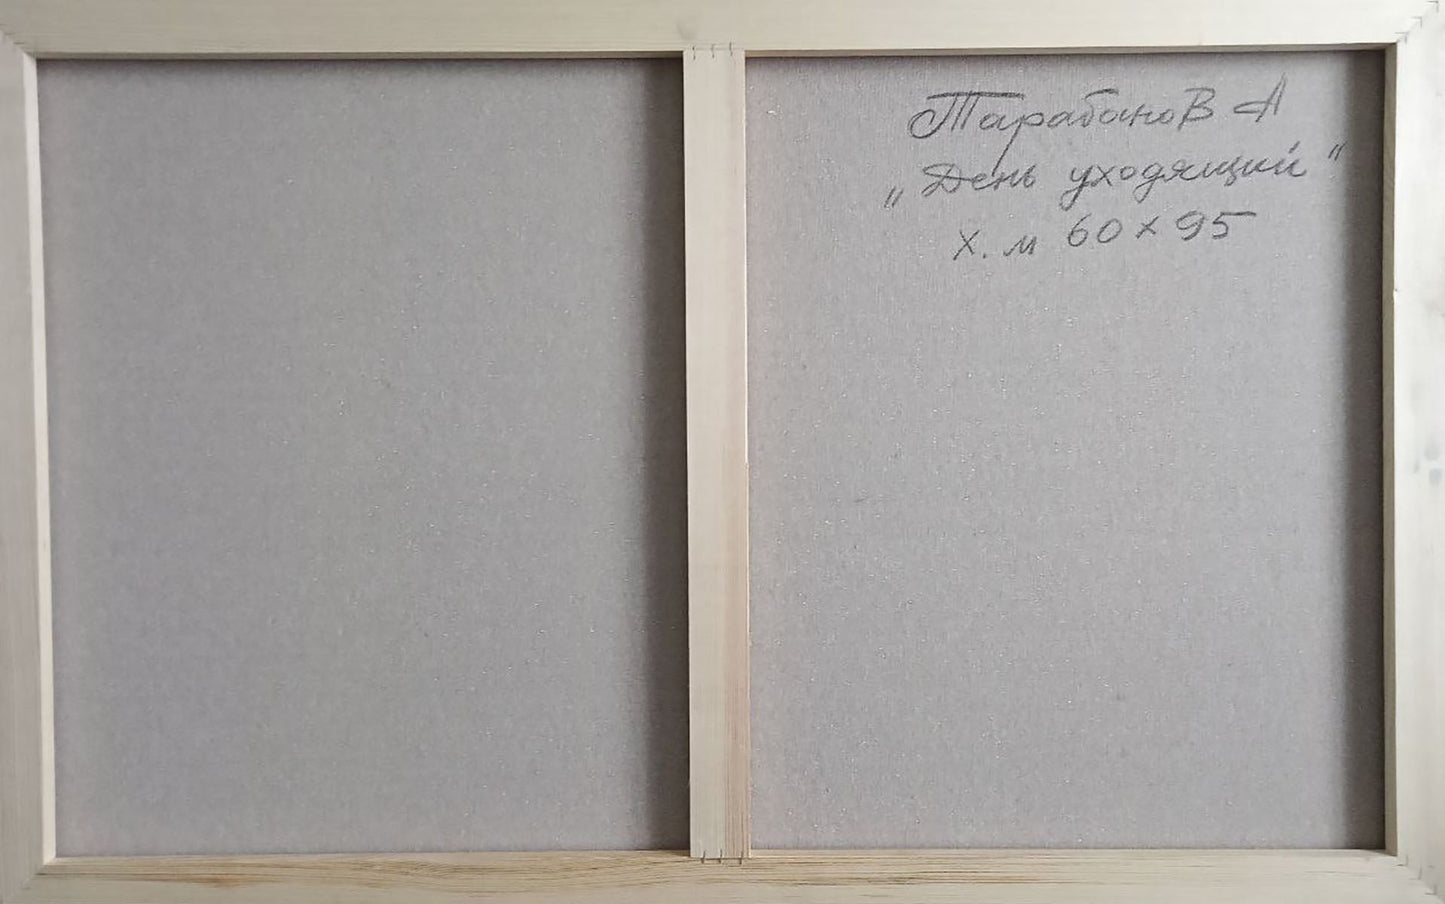 Тарабанов А
„День уходящий"
х. м 60 х 95